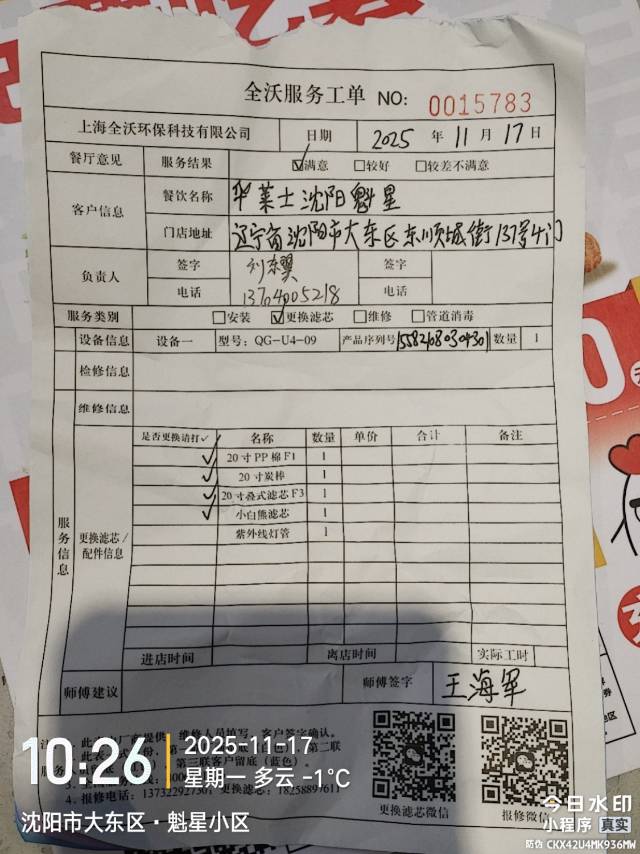 全沃服务工单 NO: 0015783
上海全沃环保科技有限公司 日期 2025 年 11 月 17 日
餐厅意见 服务结果 ☑满意 □较好 □较差不满意
客户信息 餐饮名称 华莱士沈阳魁星
门店地址 辽宁省沈阳市大东区东顺城街137号4门
负责人 签字 签字
电话 13704005218 电话
服务类别 □安装 ☑更换滤芯 □维修 □管道消毒
设备信息 设备一 型号: QG-U4-09 产品序列号 数量 1
检修信息
维修信息
服务信息 更换滤芯/配件信息
是否更换请打✓ 名称 数量 单价 合计 备注
✓ 20寸PP棉F1 1
✓ 20寸炭棒 1
✓ 20寸叠式滤芯F3 1
✓ 小白熊滤芯 1
紫外线灯管 1
进店时间 离店时间 实际工时
师傅建议 师傅签字 王海军
维修人员填写，客户签字确认。
第二联
三联客户留底（蓝色）。
4. 报修电话: 13732292730; 更换滤芯: 18258897611
更换滤芯微信 报修微信
10:26 2025-11-17
星期一 多云 -1℃
沈阳市大东区·魁星小区
今日水印
小程序 真实
防伪 CKX42U4MK936MW